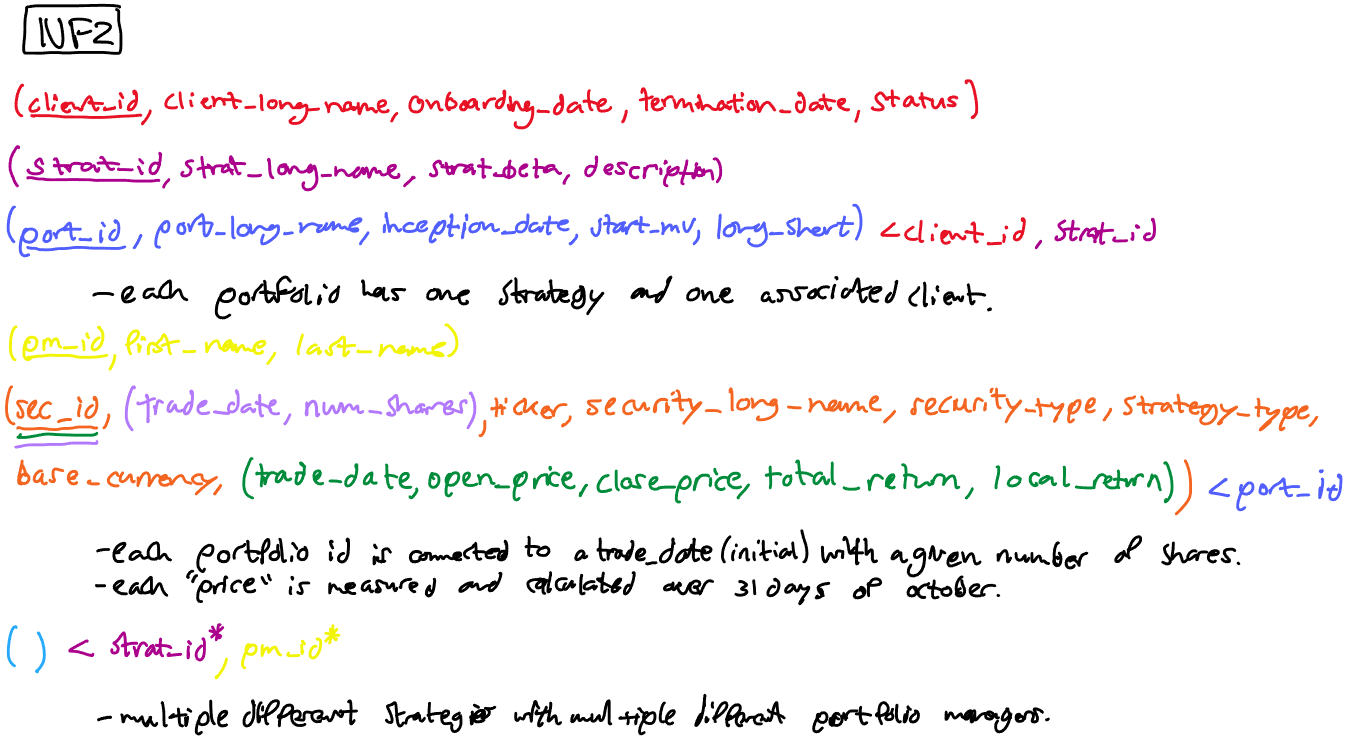 NF2
(client_id, client_long_name, onboarding_date, termination_date, status)
(strat_id, strat_long_name, strat_beta, description)
(port_id, port_long_name, inception_date, start_mv, long_short) <client_id, strat_id
- each portfolio has one strategy and one associated client.
(pm_id, first_name, last_name)
(sec_id, (trade_date, num_shares), ticker, security_long_name, security_type, strategy_type,
base_currency, (trade_date, open_price, close_price, total_return, local_return)) < port_id
- each portfolio id is connected to a trade_date (initial) with a given number of shares.
- each "price" is measured and calculated over 31 days of october.
( ) < strat_id*, pm_id*
- multiple different strategies with multiple different portfolio managers.